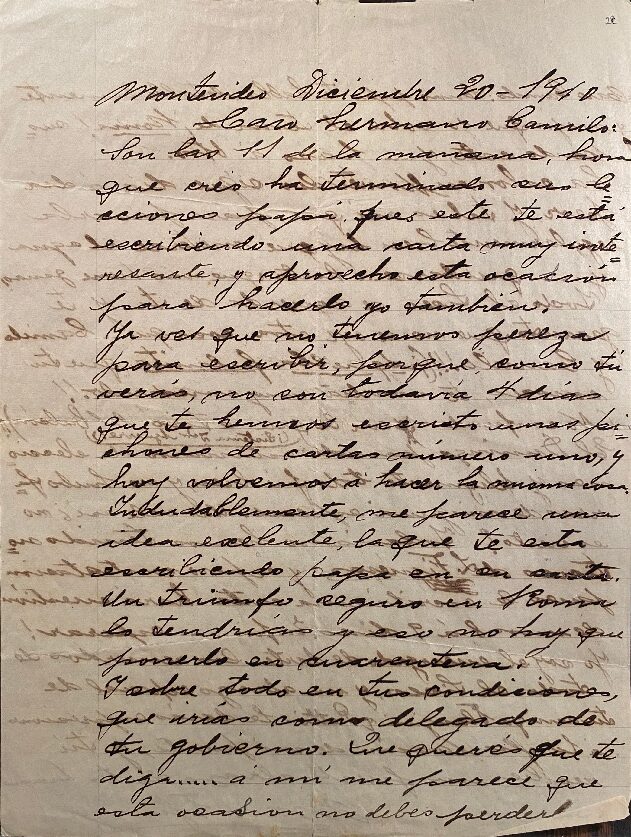 28
Montevideo Diciembre 20-1910
Caro hermano Camilo:
Son las 11 de la mañana, hora
que creo ha terminado sus le=
cciones papá, pues este te está
escribiendo una carta muy inte=
resante, y aprovecho esta ocasión
para hacerlo yo tambien.
Ya ves que no tenemos pereza
para escribir, porque, como tú
verás, no son todavia 4 dias
que te hemos escrito unos pi=
chones de cartas número uno, y
hoy volvemos á hacer la misma cosa.
Indudablemente, me parece una
idea exelente, la que te esta
escribiendo papa en su carta.
Un triunfo seguro en Roma
lo tendrias y eso no hay que
ponerlo en cuarentena.
I sobre todo en tus condiciones,
que irías como delegado de
tu gobierno. Que querés que te
diga..... á mi me parece que
esta ocasion no debes perderl